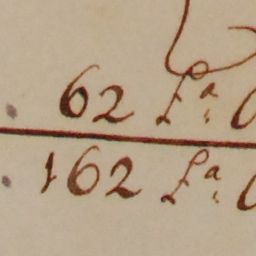 62 L.ª
162 L.ª